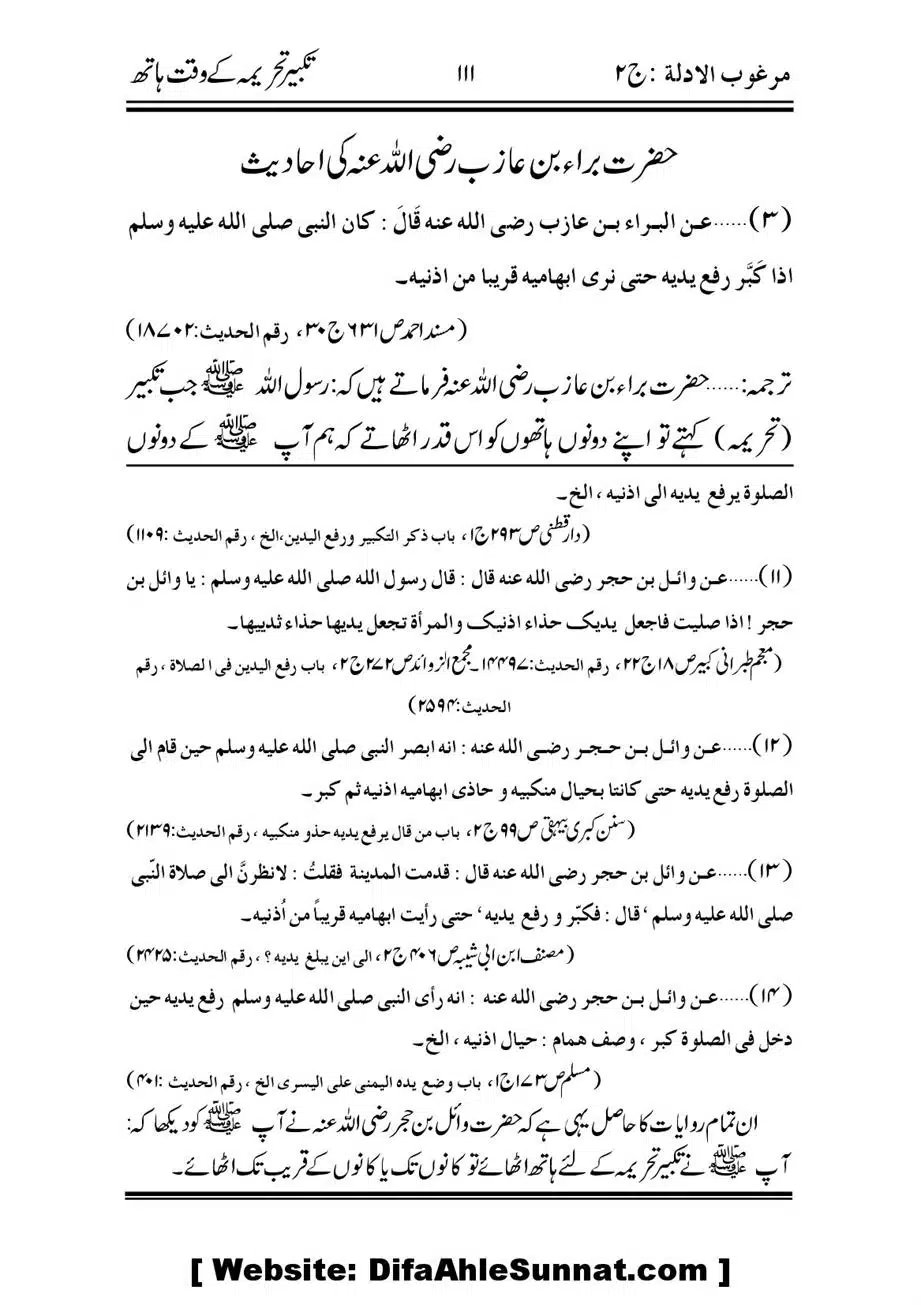 مرغوب الادلة :ج۲ ۱۱۱ تکبیر تحریمہ کے وقت ہاتھ
حضرت براء بن عازب رضی اللہ عنہ کی احادیث
(۳)......عـن البـراء بـن عازب رضی الله عنه قَالَ : کان النبی صلی الله علیه وسلم
اذا کَبَّر رفع یدیه حتی نری ابهامیه قریبا من اذنیه۔
(مسند احمد ص ۶۳۱ ج ۳۰، رقم الحدیث:۱۸۷۰۲)
ترجمہ:.....حضرت براء بن عازب رضی اللہ عنہ فرماتے ہیں کہ: رسول اللہ ﷺ جب تکبیر
(تحریمہ) کہتے تو اپنے دونوں ہاتھوں کو اس قدر اٹھاتے کہ ہم آپ ﷺ کے دونوں
الصلوة یرفع یدیه الی اذنیه ، الخ۔
(دارقطنی ص ۲۹۳ ج ۱، باب ذکر التکبیر ورفع الیدین،الخ ، رقم الحدیث :۱۱۰۹)
(۱۱)......عـن وائـل بن حجر رضی الله عنه قال : قال رسول الله صلی الله علیه وسلم : یا وائل بن
حجر ! اذا صلیت فاجعل یدیک حذاء اذنیک والمرأة تجعل یدیها حذاء ثدییها۔
(معجم طبرانی کبیر ص ۱۸ ج ۲۲، رقم الحدیث:۱۴۴۹۷۔مجمع الزوائد ص ۲۷۲ ج ۲، باب رفع الیدین فی الصلاة ، رقم
الحدیث:۲۵۹۴)
(۱۲)......عـن وائـل بـن حـجـر رضـی الله عنه : انه ابصر النبی صلی الله علیه وسلم حین قام الی
الصلوة رفع یدیه حتی کانتا بحیال منکبیه و حاذی ابهامیه اذنیه ثم کبر ۔
(سنن کبری بیہقی ص ۹۹ ج ۲، باب من قال یرفع یدیه حذو منکبیه ، رقم الحدیث:۲۱۳۹)
(۱۳)......عـن وائل بن حجر رضی الله عنه قال : قدمت المدینة فقلتُ : لانظرنَّ الی صلاة النّبی
صلی الله علیه وسلم ‘ قال : فکبّر و رفع یدیه ‘ حتی رأیت ابهامیه قریباً من اُذنیه۔
(مصنف ابن ابی شیبہ ص ۴۰۶ ج ۲، الی این یبلغ یدیه ؟ ، رقم الحدیث:۲۴۲۵)
(۱۴)......عـن وائـل بـن حجر رضی الله عنه : انه رأی النبی صلی الله علیه وسلم رفع یدیه حین
دخل فی الصلوة کبر ، وصف همام : حیال اذنیه ، الخ۔
(مسلم ص ۱۷۳ ج ۱، باب وضع یده الیمنی علی الیسری الخ ، رقم الحدیث :۴۰۱)
ان تمام روایات کا حاصل یہی ہے کہ حضرت وائل بن حجر رضی اللہ عنہ نے آپ ﷺ کو دیکھا کہ:
آپ ﷺ نے تکبیر تحریمہ کے لئے ہاتھ اٹھائے تو کانوں تک یا کانوں کے قریب تک اٹھائے۔
[ Website: DifaAhleSunnat.com ]